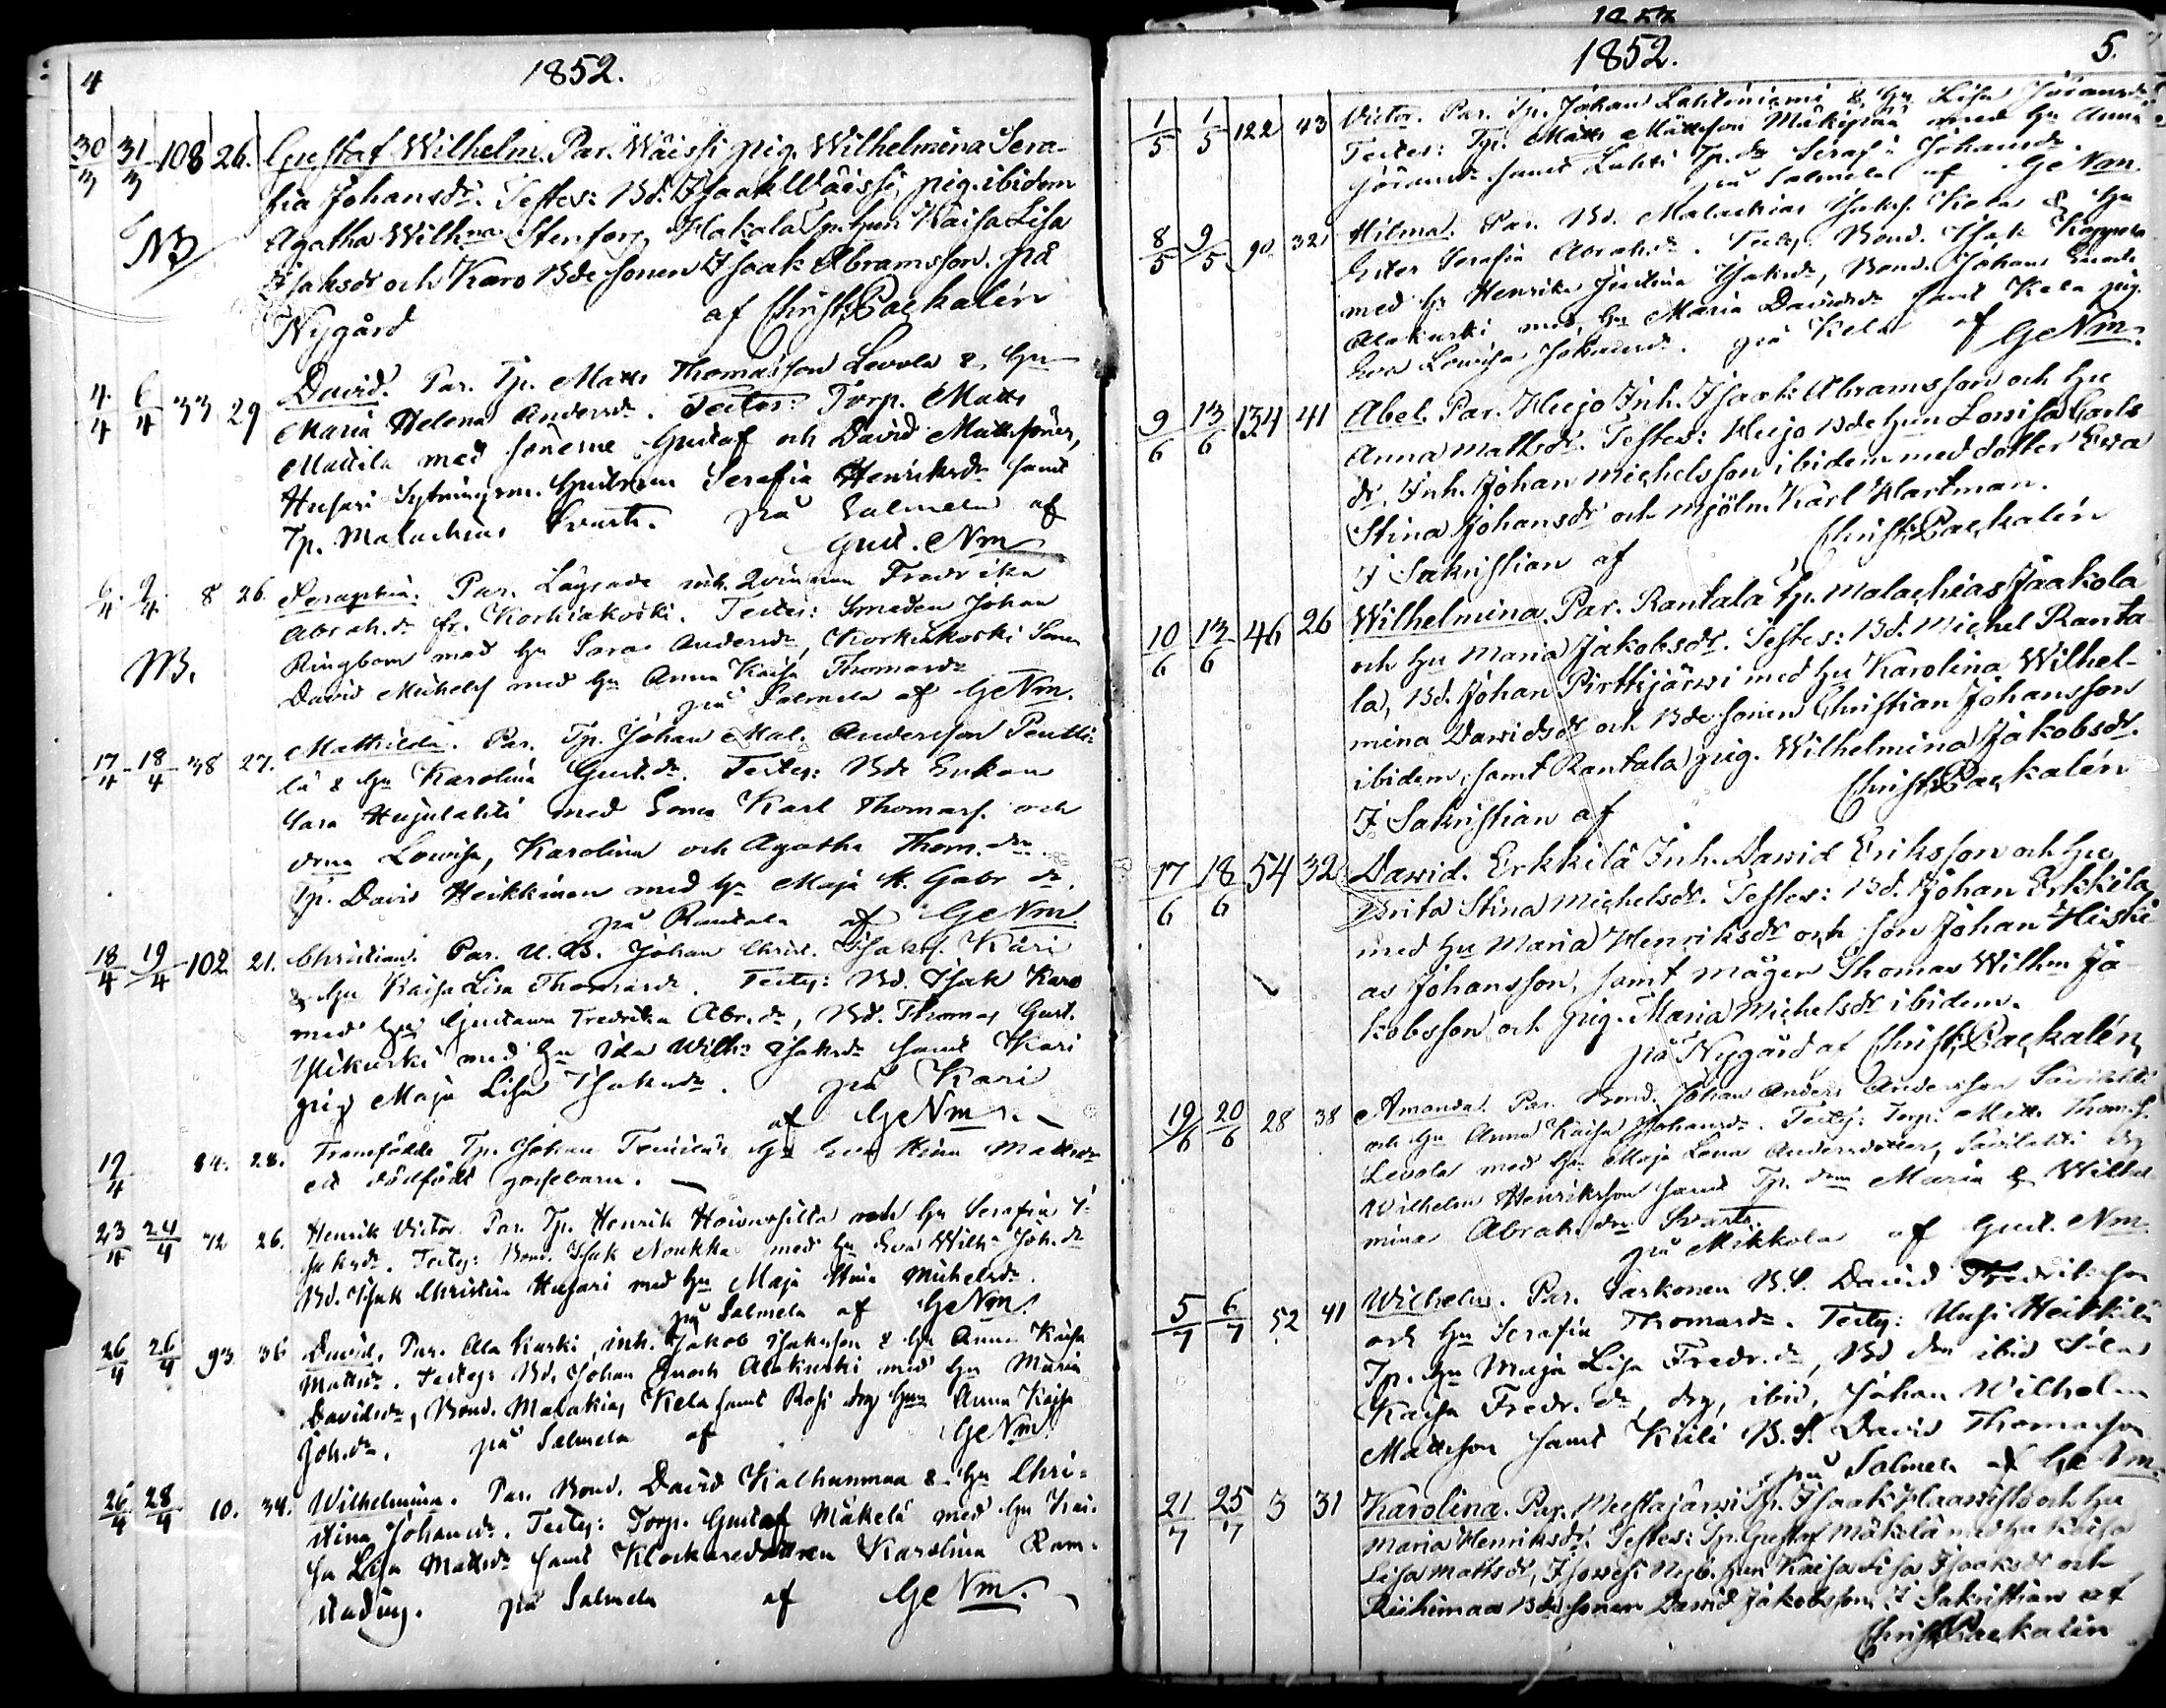 4
1852.
30/3 31/3 108 26. Gustaf Wilhelm. Par. Wäissi pig. Wilhelmina Sera-
fia Johansdr. Testes: Bd. Isaak Wäissi, pig. ibidem
Agatha Wilhna Stenfors, Hakala Tp. hun Kaisa Lisa
NB
Isaksdr och Karo Bdesonen Isaak Abramsson. på
Nygård af Christ. Packalén
4/4 6/4 33 29 David. Par. Tp. Matts Thomasson Levola & hu
Maria Helena Andersdr. Testes: Torp. Matts
Mattila med sönerne Gustaf och David Mattssöner,
Husari Sytningsm. hustrun Serafia Henriksdr samt
Tp. Malachias Svart. på Salmela af
Gust. Nm
6/4. 9/4. 8 26. Seraphia. Par. Lägrade inh. Qvinnan Fredrika
Abrah.dr fr. Korkiakoski. Testes: Smeden Johan
Ringbom med hu Sara Andersdr, Korkiakoski Sonen
NB.
David Michelss med hu Anna Kaisa Thomasdr
på Salmela af GeNm.
17/4 18/4 38 27. Mathilda. Par. Tp. Johan Mal. Andersson Pentti-
lä & hu Karolina Gust.dr. Testes: Bde Enkan
Sara Hujulahti med Sonen Karl Thomass. och
drna Lowisa, Karolina och Agatha Thom.drr
Tp. David Heikkinen med hu Maja St. Gabr.dr.
på Rantala af GeNm
18/4 19/4 102 21. Christian. Par. U. B. Johan Christ. Isakss. Kari
& hu Kaisa Lisa Thomasdr. Testes: Bd. Isak Karo
med hu Gustava Fredrika Abr.dr, Bd. Thomas Gust.
Ylikurki med hu Ida Wilh. Isaksdr samt Kari
pig Maja Lisa Isaksdr. på Kari
af GeNm.
19/4 84. 28. Framfödde Tp. Johan hu Eva Stina Mattsdr
ett dödfödt gossebarn.
23/4 24/4 72 26. Henrik Victor. Par. Tp. Henrik Hoivassilta och hu Serafia I-
saksdr. Testes: Bond. Isak Noukka med hu Eva Wilh. Joh.dr
Bd. Isak Christian Husari med hu Maja Stina Michelsdr.
på Salmela af GeNm.
26/4 26/4 93 36 David. Par. Ala Kurki, inh. Jakob Isaksson & hu Anna Kaisa
Mattsdr. Testes: Bd. Johan Enoch Alakurki med hu Maria
Davidsdr, Bond. Malakias Kela samt Rosi drg hun Anna Kaisa
Joh.dr. på Salmela af GeNm
26/4 28/4 10. 34. Wilhelmina. Par. Bond. David Kalhanmaa & hu Chri-
stina Johansdr. Testes: Torp. Gustaf Mäkelä med hu Kai-
sa Lisa Mattsdr samt Klockaredottren Karolina Ram-
stadius. på Salmela af GeNm.
1852.
5.
1/5 1/5 122 43 Victor. Par. Tp. Johan Lahteniemi & hu Lisa Jöransdr
Testes: Tp. Matts Mattsson Mäkipää med hu Anna
Jöransdr samt Lahti Tp.dr Serafia Johansdr.
på Salmela af GeNm.
8/5 9/5 90 32 Hilma. Par. Bd. Malachias Isakss. Kela & hu
Ester Serafia Abrah.dr. Testes. Bond. Isak Koppela
med hu Henrika Justina Isaksdr, Bond. Johan Enoch
Alakurki med hu Maria Davidsdr samt Kela pig.
Eva Lowisa Johansdr. på Kela af GeNm.
9/6 13/6 134 41 Abel. Par. Heijo Inh. Isaak Abramsson och hu
Anna Mattsdr. Testes: Heijo Bdehun Lowisa Carls
dr, Inh. Johan Michelsson ibidem med dotter Ewa
Stina Johansdr och Mjöln. Karl Hartman.
I Sakristian af Christ. Packalén
10/6 13/6 46 26 Wilhelmina. Par. Rantala Tp. Malachias Jaakola
och hu Maria Jakobsdr. Testes: Bd. Michel Ranta
la, Bd. Johan Pirttijärwi med hu Karolina Wilhel-
mina Dawidsdr och Bdesonen Christian Johansson
ibidem, samt Rantala pig. Wilhelmina Jakobsdr.
I Sakristian af Christ. Packalén
17/6 18/6 54 32 Dawid. Erkkilä Inh. Dawid Eriksson och hu
Brita Stina Michelsdr. Testes: Bd. Johan Erkkilä
med hu Maria Henriksdr och son Johan Hiski-
as Johansson, samt mågen Thomas Wilhm Ja-
kobsson och pig. Maria Michelsdr ibidem.
på Nygård af Christ. Packalén
19/6 20/6 28 38 Amanda. Par. Bond. Johan Anders Andersson Savilahti
och hu Anna Kaisa Johansdr. Testes: Torp. Matts Thomss.
Levola med hu Maja Lena Andersdotter, Savilahti drg
Wilhelm Henriksson samt Tp. drna Maria & Wilhel-
mina Abrah.drr Svart.
på Mikkola af Gust. Nm.
5/7 6/7 52 41 Wilhelm. Par. Sarkonen B.S. David Fredriksson
och hu Serafia Thomasdr. Testes: Uusi Heikkilä
Tp. hu Maja Lisa Fredr.dr, Bd dr ibid
Kaisa Fredr.dr, drg. ibid. Johan Wilhelm
Mattsson samt Kiili B.S. David Thomasson
på Salmela af GeNm.
21/7 25/7 3 31 Karolina. Par. Mustajärwi Tp. Isaak Haawisto och hu
Maria Henriksdr. Testes: Tp. Gustaf Mäkelä med hu Kaisa
Lisa Mattsdr, Isowesi Nyb. hun Kaisa Lisa Isaaksdr och
Riihimaa Bdesonen Dawid Jakobsson. I Sakristian af
Christ. Packalén